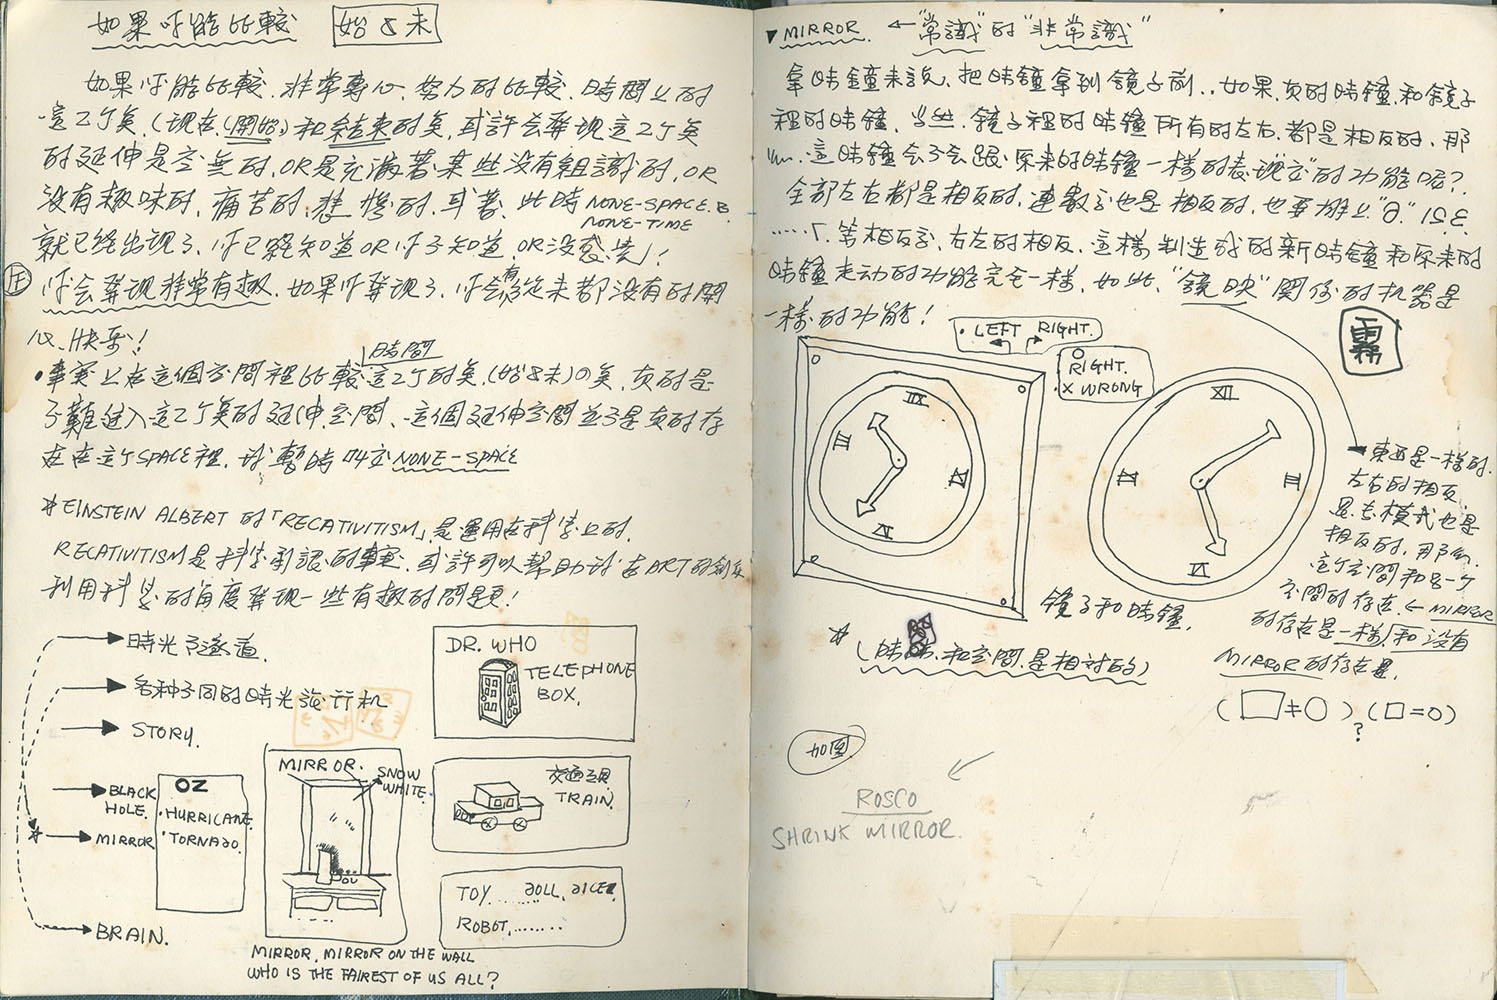 如果你能比較 始&末
如果你能比較.非常專心.努力的比較.時間上的
這2个矣.(现在(開始)和結束的矣.或許会發现這2个矣
的延伸是空無的.OR是充滿著某些没有組識的.OR
没有趣味的.痛苦的.悲慘的.或者.此時 NONE-SPACE.&
NONE-TIME
就已经出现了.你已經知道OR你不知道.OR没感覚!
你会發现非常有趣.如果你發现了.你会有從来都没有的開
心.快乐!
時間
•事實上在這個空間裡比較這2个的矣.(始&末)の矣.真的是
不難進入這2个矣的延伸空間.這個延伸空間並不是真的存
在在這个SPACE裡.我暫時叫它NONE-SPACE
* EINSTEIN ALBERT 的「RECATIVITISM」是運用在科学上的.
RECATIVITISM是科学承認的事實.或許可以幫助我在ART的創作
利用科学的角度發现一些有趣的問題!
→時光隧道.
→各种不同的時光旅行机
→STORY.
→BLACK HOLE.
* →MIRROR
→BRAIN.
OZ
•HURRICANE.
•TORNADO.
MIRROR.
SNOW
WHITE.
MIRROR, MIRROR ON THE WALL
WHO IS THE FAIREST OF US ALL?
DR. WHO
TELEPHONE
BOX.
交通工具
TRAIN.
TOY. ...DOLL, DICE
ROBOT........
▼MIRROR. ←"常識"的"非常識"
拿時鐘来説.把時鐘拿到鏡子前..如果.真的時鐘和鏡子
裡的時鐘.当然.鏡子裡的時鐘所有的左右.都是相反的.那
么.這時鐘会不会跟原来的時鐘一樣的表现它的功能呢?
全部左右都是相反的.連數字也是相反的.也要加上
等相反字.右左的相反.這樣製造成的新時鐘和原来的
時鐘走动的功能完全一樣.如此."鏡映"關係的机器是
一樣的功能!
霧
• LEFT RIGHT.
○
RIGHT.
X WRONG
XII
III
VI
IX
鏡子和時鐘.
東西是一樣的.
左右的相反
思考模式也是
相反的.那么.
這个空間和另一个
空間的存在.← MIRROR
的存在是一樣.和没有
MIRROR的存在是.
(□≠○)?(□=○)
?
* (時間.和空間.是相対的)
如図
ROSCO
SHRINK MIRROR.